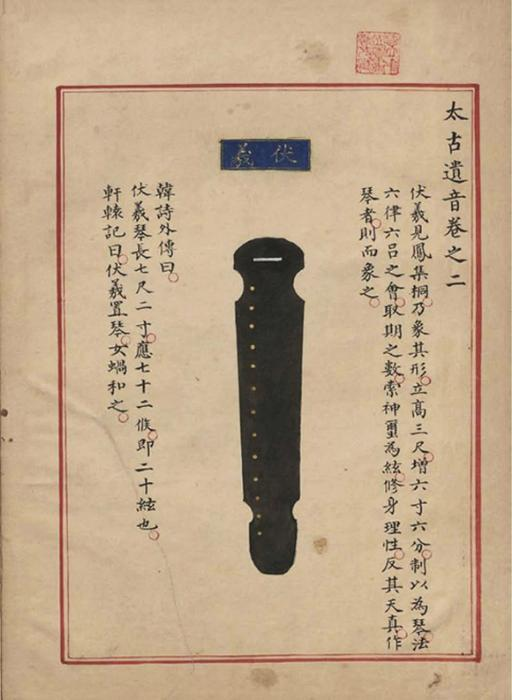 太古遺音卷之二
伏羲見鳳集桐乃象其形立高三尺增六寸六分制以為琴法
六律六呂之會取期之數索神璽為絃修身理性反其天真作
琴者則而象之
伏羲
韓詩外傳曰
伏羲琴長七尺二寸應七十二候即二十絃也
軒轅記曰伏羲置琴女媧和之